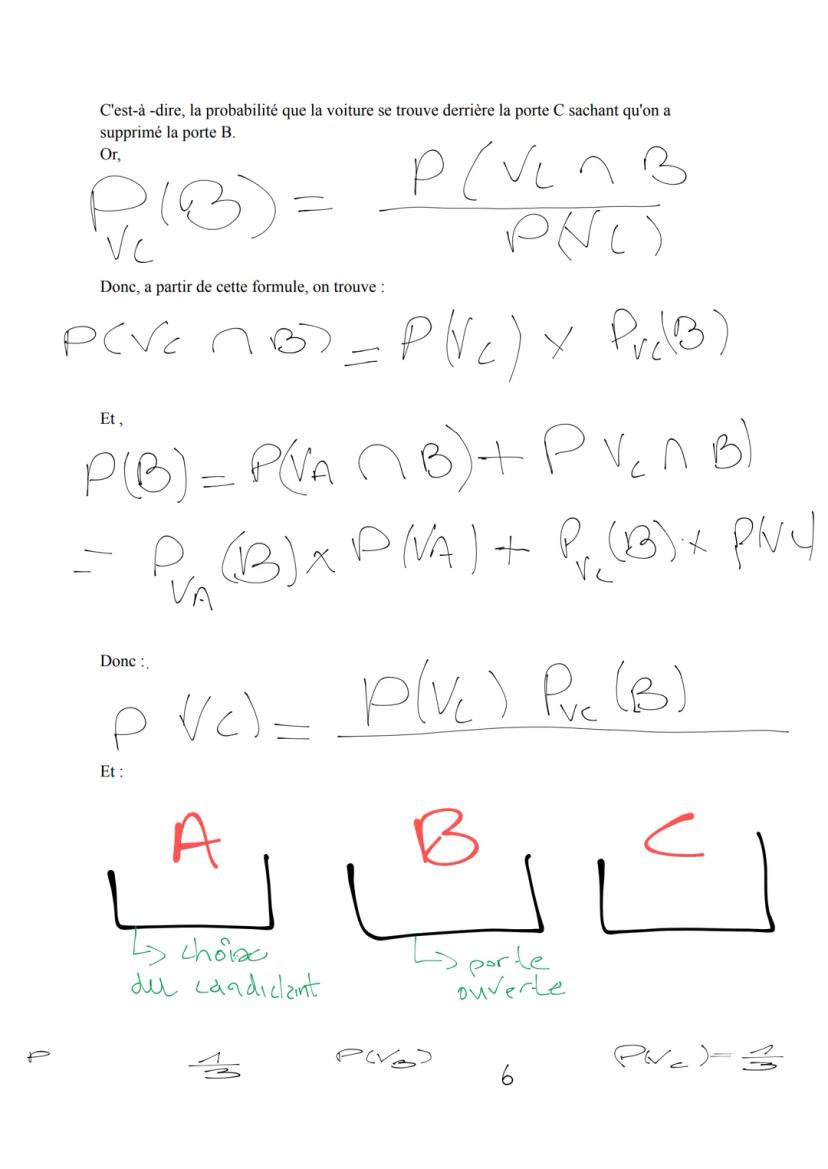 C'est-à -dire, la probabilité que la voiture se trouve derrière la porte C sachant qu'on a
supprimé la porte B.
Or,
P(VC ∩ B
P (B) =
VC
P(VC)
Donc, a partir de cette formule, on trouve :
P(VC ∩ B) = P(VC) × PVC(B)
Et ,
P(B) = P(VA ∩ B) + P VC ∩ B)
= PVA(B) × P(VA) + PVC(B) × P(VC
Donc :
P(VC) PVC(B)
P VC) =
Et :
A B C
↳ choix
du candidant
↳ porte
ouverte
P 1/3 P(VB) P(VC) = 1/3
6